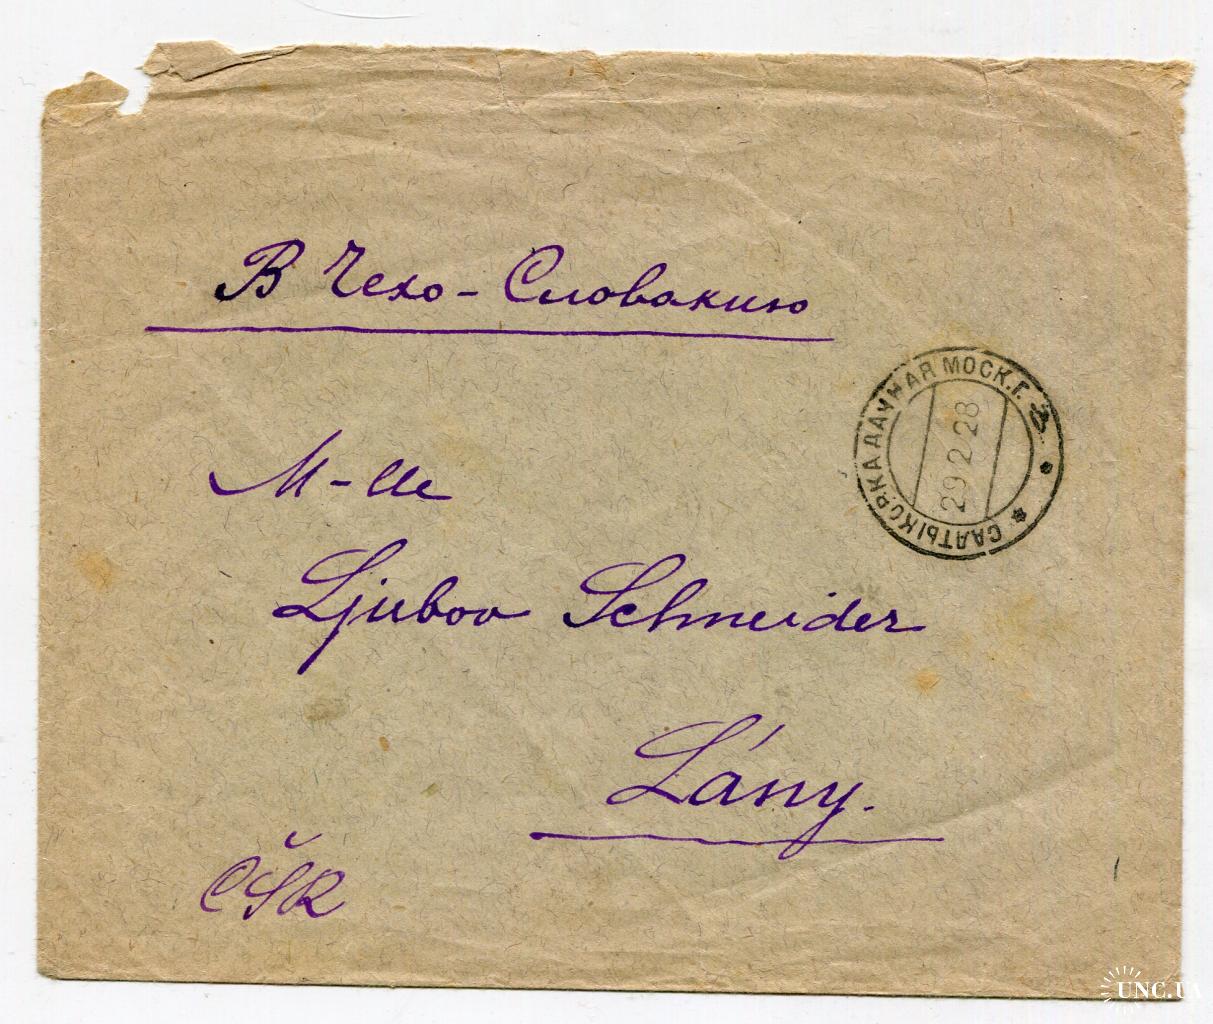 В Чехо-Словакию
САЛТЫКОВКА ДАЧНАЯ МОСК. Г.
29 2 28
M-lle
Ljubov Schneider
Lány.
ČSR
UNC.UA